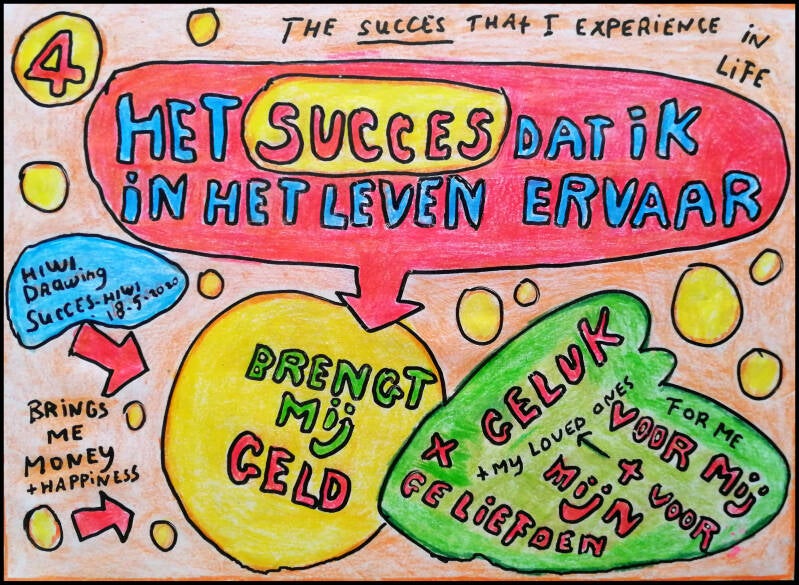 4
THE SUCCES THAT I EXPERIENCE IN
LIFE
HET SUCCES DAT iK
iN HET LEVEN ERVAAR
HIWI
DRAWING
SUCCES-HIWI
18.5.2020
BRINGS
ME
MONEY
+HAPPINESS
BRENGT
MIJ
GELD
+ GELUK
VOOR MIJ
FOR ME
+ MY LOVED ONES
+ VOOR
MIJN
GELIEFDEN